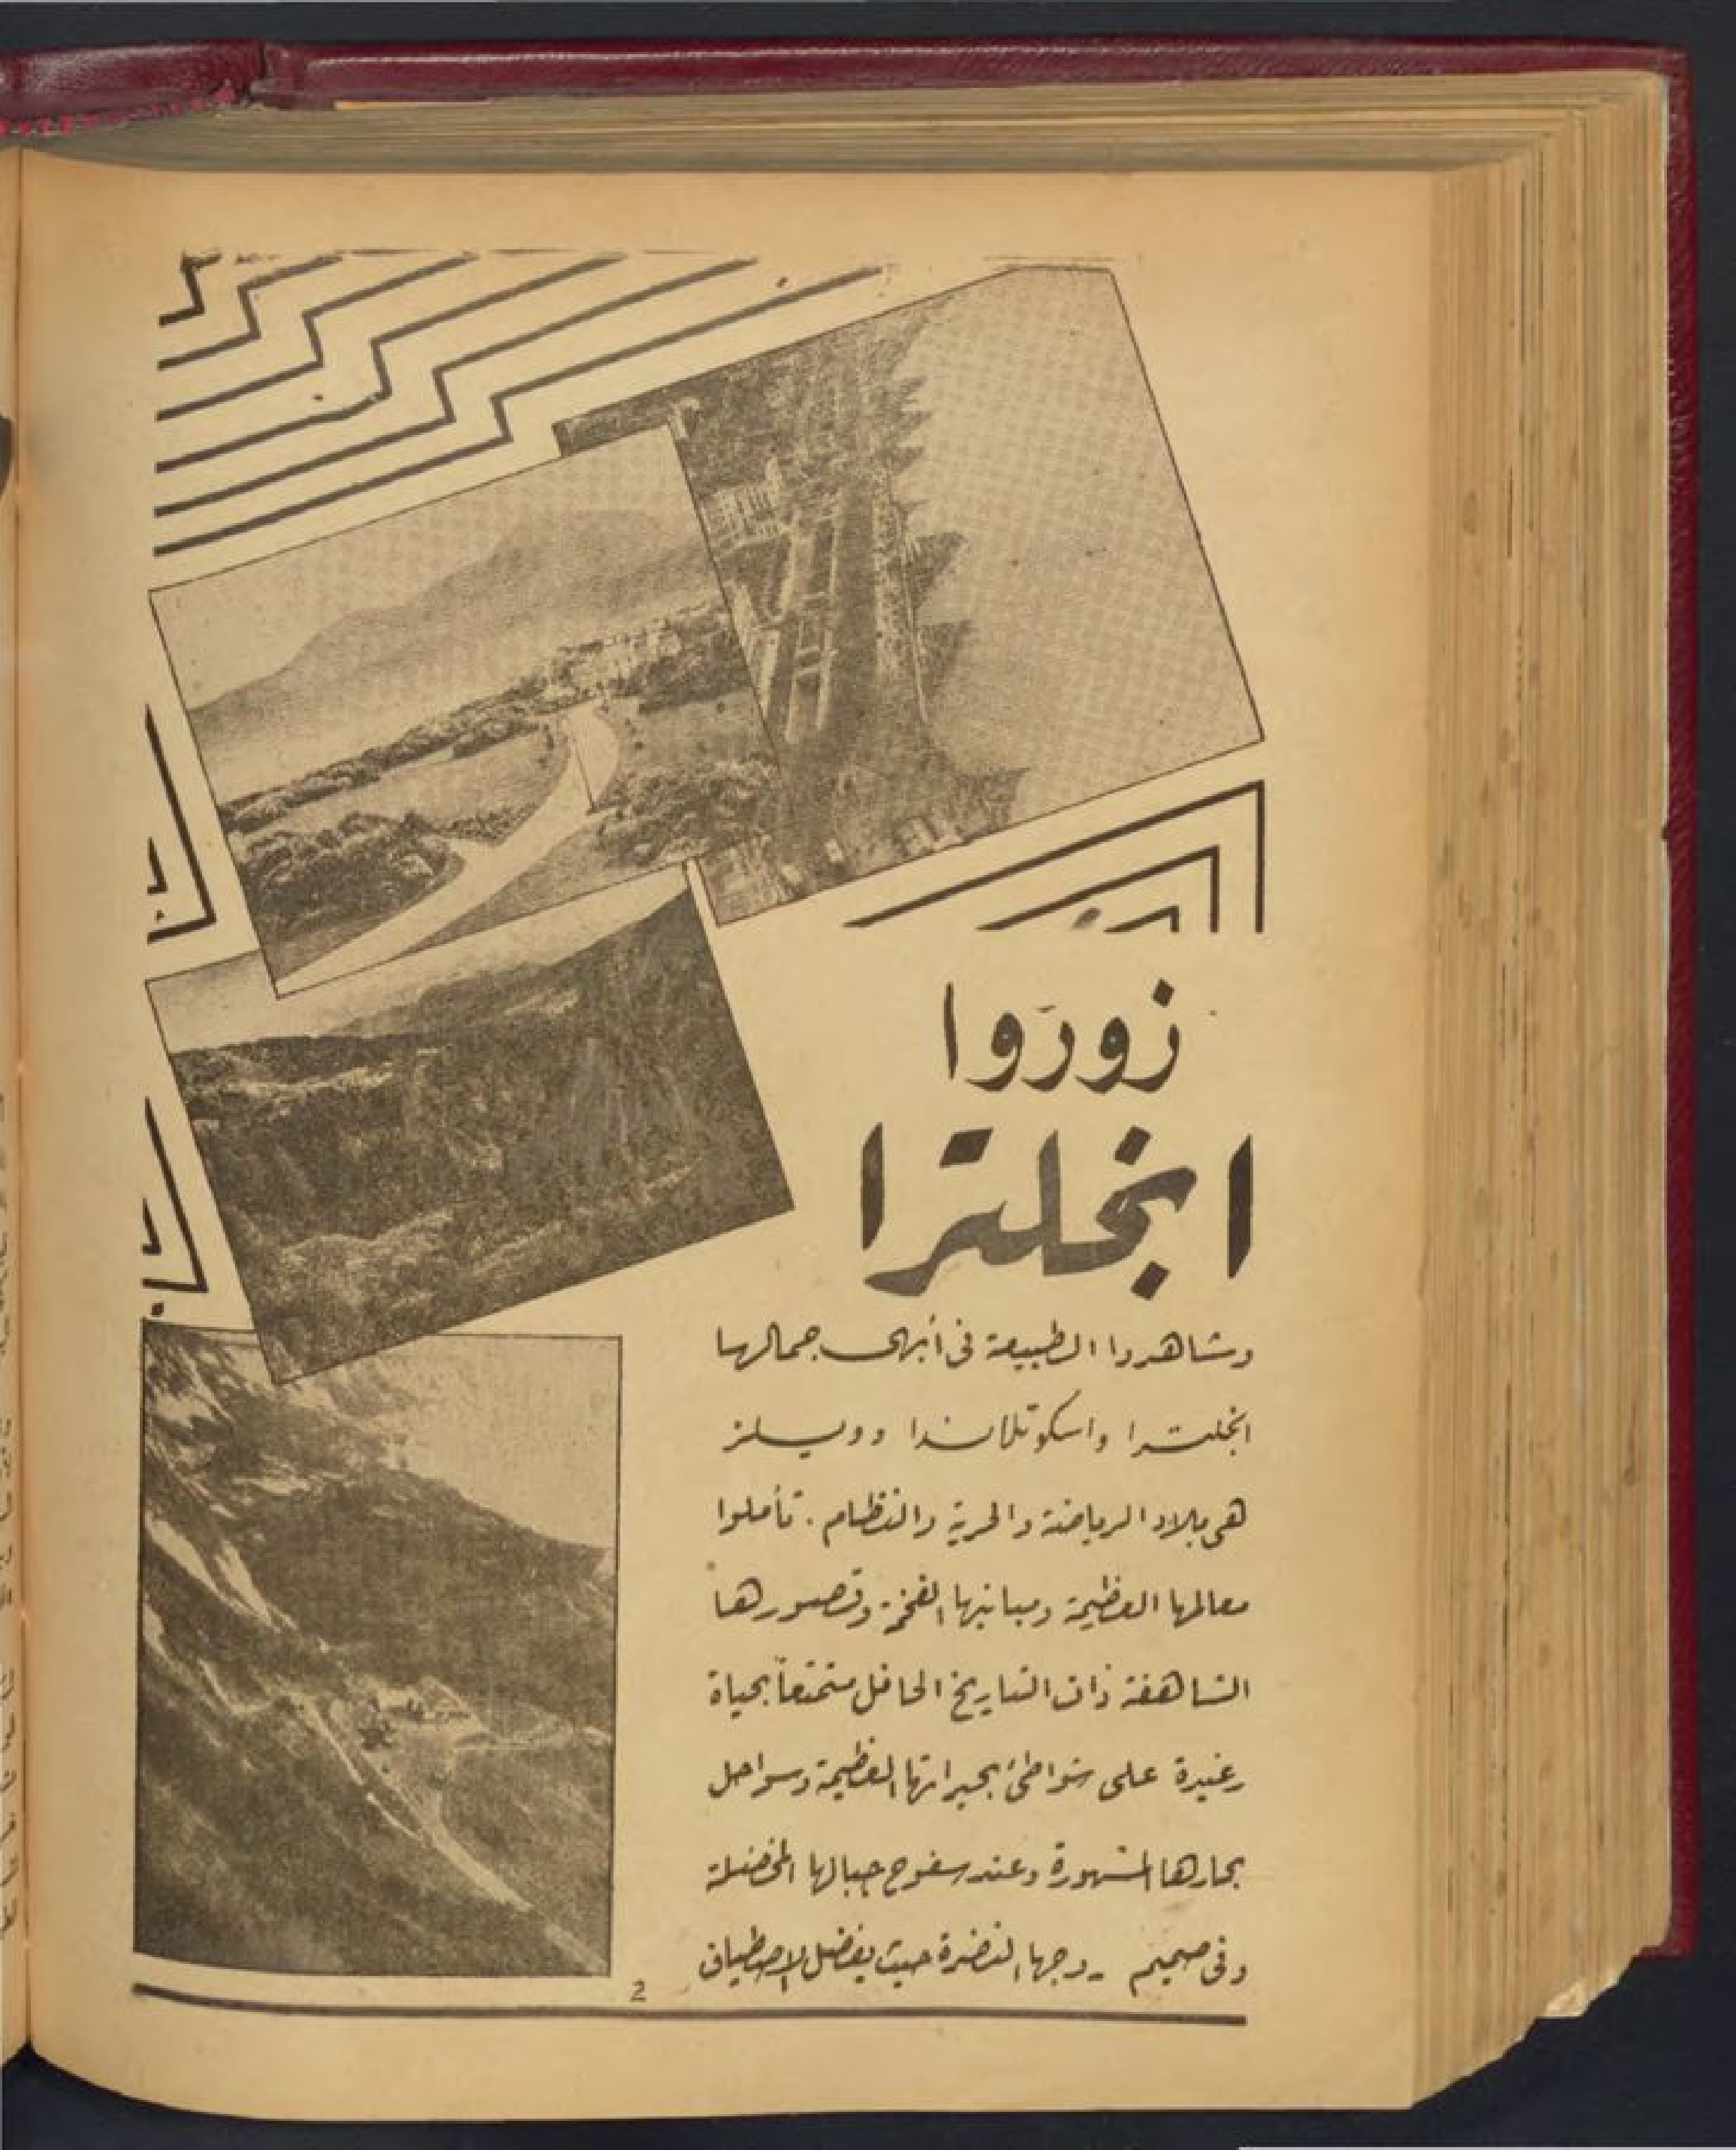 زوروا
انجلترا
وشاهدوا الطبيعة فى أبهى جمالها
انجلترا واسكوتلاندا وويلز
هى بلاد الرياضة والحرية والنظام . تأملوا
معالمها العظيمة ومبانيها الفخمة وقصورها
الشاهقة ذات التاريخ الحافل متمتعاً بحياة
رغيدة على شواطئ بحيراتها العظيمة وسواحل
بحارها المشهورة وعند سفوح جبالها المخضلة
وفى صميم حيث يفضل الاصطياف
2